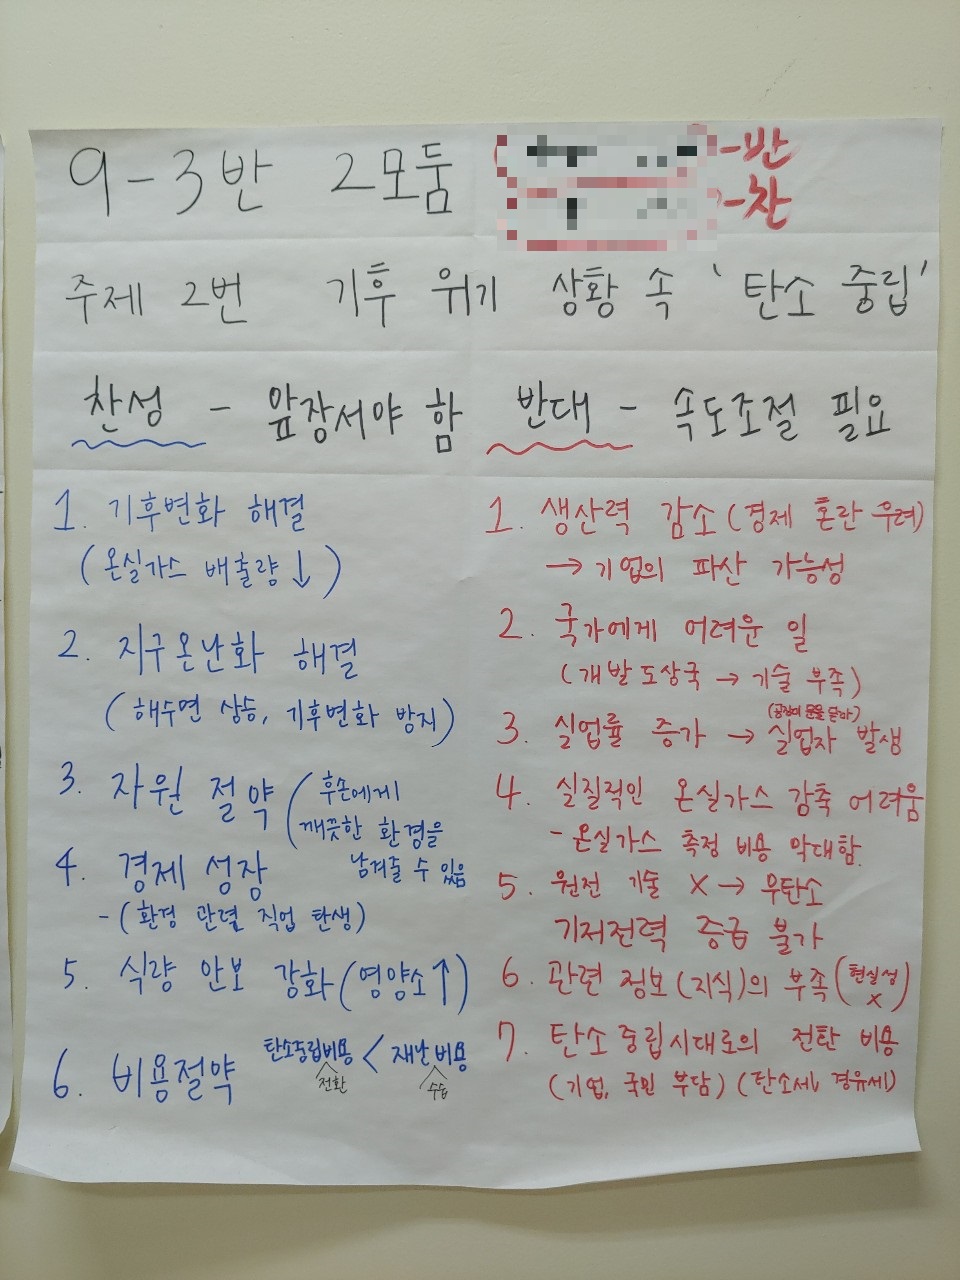 9-3반 2모둠
-반
-찬
주제 2번 기후 위기 상황 속 '탄소 중립'
찬성 - 앞장서야 함
1. 기후변화 해결
(온실가스 배출량↓)
2. 지구온난화 해결
(해수면 상승, 기후변화 방지)
3. 자원 절약 (후손에게
깨끗한 환경을
남겨줄 수 있음
4. 경제 성장
-(환경 관련 직업 탄생)
5. 식량 안보 강화(영양소↑)
6. 비용절약 탄소중립비용 < 재난비용
전환 수습
반대 - 속도조절 필요
1. 생산력 감소(경제 혼란 우려)
→기업의 파산 가능성
2. 국가에게 어려운 일
(개발도상국→기술 부족)
(공장이 문을 닫아)
3. 실업률 증가 → 실업자 발생
4. 실질적인 온실가스 감축 어려움
- 온실가스 측정 비용 막대함.
5. 원전 기술 X → 무탄소
기저전력 증급 불가
6. 관련 정보(지식)의 부족(현실성
X)
7. 탄소중립시대로의 전탄 비용
(기업, 국민 부담) (탄소세, 경유세)